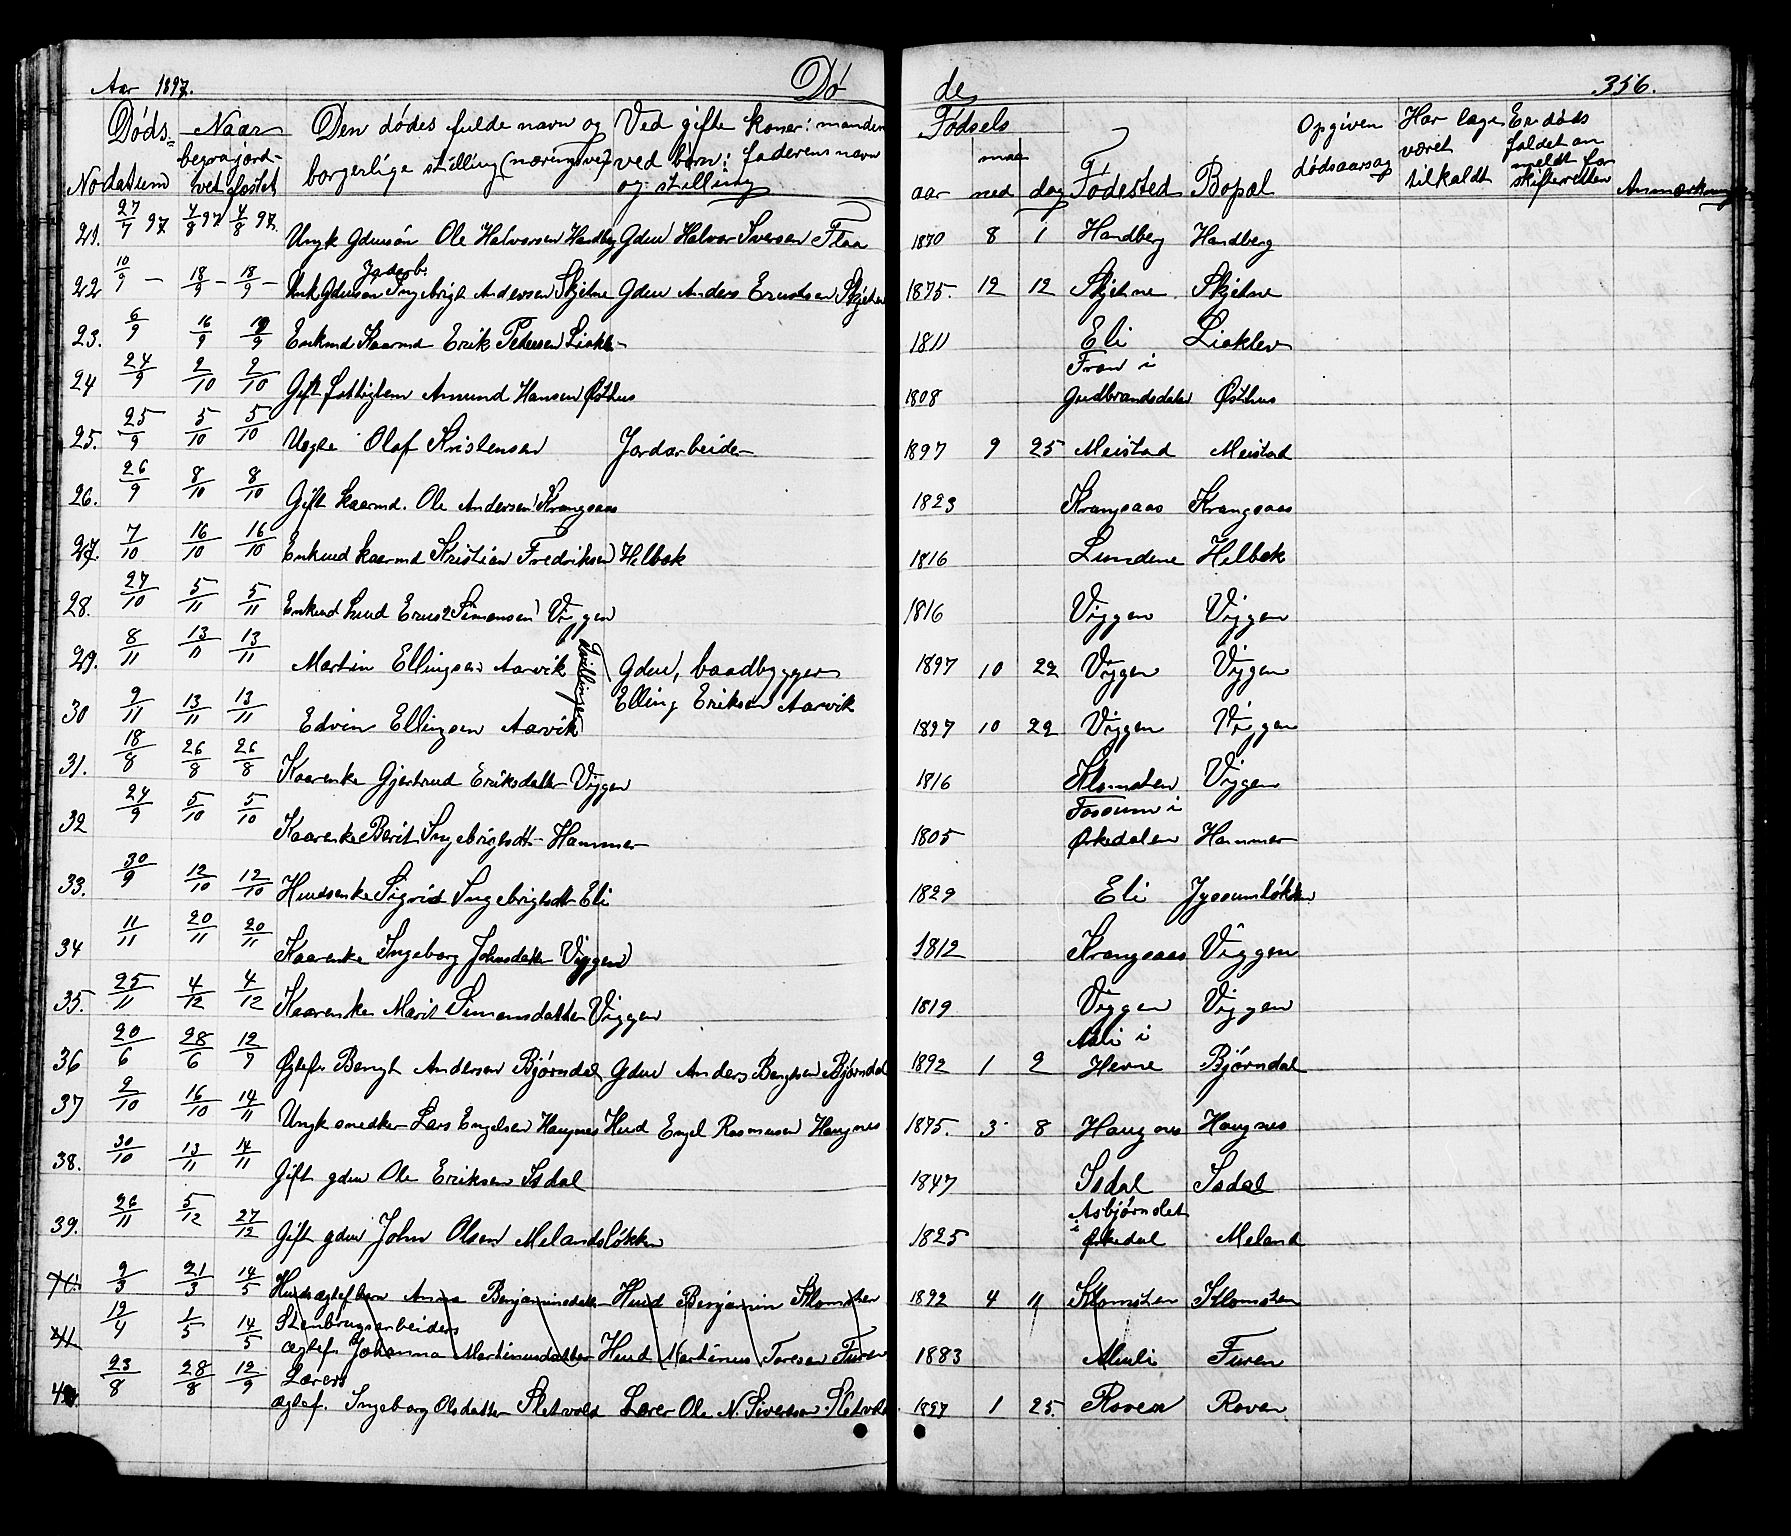 Aar 1897. Dø de 356.
Døds- Naar Den dødes fulde navn og Ved gifte koner: manden Fødsels Opgiven Har læge Er døds
begra jord- borgerlige stilling (næringsvei) ved børn: faderens navn maa dødsaarsag været faldet an
No datum vet fæstet og stilling aar ned dag Fødested Bopæl tilkaldt meldt for
skifteretten Anmærkninger
21. 27/7 97 4/8 97 4/8 97. Ungk gdmsøn Ole Halvorsen Handberg Gdm Halvor Iversen Flaa 1870 8 1 Handberg Handberg
Jordarb.
22 10/9 – 18/9 – 18/9 – Unk gdmsøn Ingebrigt Andersen Skjetne Gdm Anders Erntsen Skjetne 1875. 12 12 Skjetne Skjetne
23. 6/9 16/9 19/9 Enkmd Kaarmd Erik Pedersen Liakle- 1811 Eli Liaklev
Fron i
24 24/9 2/10 2/10 Gift fattiglem Amund Hansen Østhus 1808 Gudbrandsdalen Østhus
25. 25/9 5/10 5/10 Uegte Olaf Kristensen Jordarbeider 1897 9 25 Meistad Meistad
26. 26/9 8/10 8/10 Gift kaarmd. Ole Andersen Krangsaas 1823 Krangsaas Krangsaas
27. 7/10 16/10 16/10 Enkmd kaarmd Kristian Fredriksen Helbek 1816 Lundene Helbek
28. 27/10 5/11 5/11 Enkmd hmd Ernst Simonsen Viggen 1816 Viggen Viggen
29. 8/11 13/11 13/11 Martin Ellingsen Aarvik Tvillinger Gdm, baadbygger 1897 10 22 Viggen Viggen
Elling Eriksen Aarvik
30 9/11 13/11 13/11 Edvin Ellingsen Aarvik 1897 10 22 Viggen Viggen
31. 18/8 26/8 26/8 Kaarenke Gjertrud Eriksdatter Viggen 1816 Klomsten Viggen
Fossum i
32 24/9 5/10 5/10 Kaarenke Berit Ingebrigtsdt- Hammer 1805 Ørkedalen Hammer
33. 30/9 12/10 12/10 Husmenke Sigrid Ingebrigtsdt- Eli 1829 Eli
34 11/11 20/11 20/11 Kaarenke Ingeborg Johnsdatter Viggen 1812 Krangsaas Viggen
35. 25/11 4/12 4/12 Kaarenke Marit Simonsdatter Viggen 1819 Viggen Viggen
i
36 20/6 28/6 12/7 Ægtefs Bengt Andersen Bjørndal Gdm Anders Bengtsen Bjørndal 1892 1 2 Hevne Bjørndal
37 2/10 16/10 14/11 Ungk snedker Lars Engelsen Haugnes Hmd Engel Rasmusen Haugnes 1875. 3 8 Haugnes Haugnes
38. 30/10 13/11 14/11 Gift gdm Ole Eriksen Isdal 1847 Isdal Isdal
Asbjørnslet
39. 26/11 5/12 27/12 Gift gdm John Olsen Melandsløkken 1825 i Ørkedal Meland
40. 9/3 21/3 14/5 Hmds ægtef barn Anna Benjaminsdatter Hmd Benjamin Klomsten 1892 4 11 Klomsten Klomsten
Stenbrugsarbeiders
41 12/4 1/5 14/5 ægtefs Johanna Martinusdatter Hmd Martinus Toresen Furen 1883 Furen
Lærers
42 23/8 28/8 12/9 ægtef. Ingeborg Olsdatter Sletvold Lærer Ole N. Sivertsen Sletvold 1897 1 25. Roven Roven